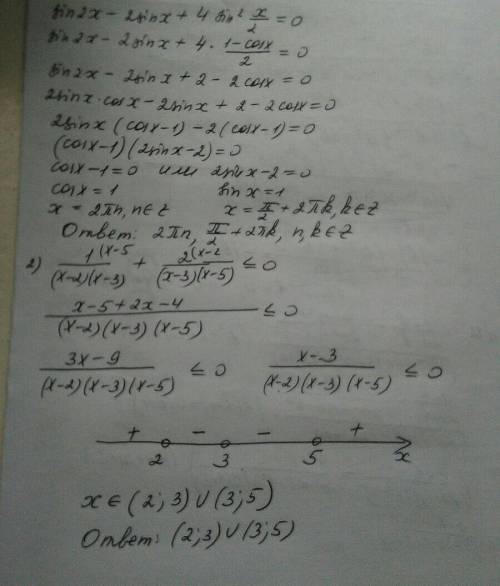 sin2x - 2sinx + 4 sin² x/2 = 0
sin2x - 2sinx + 4 · (1-cosx)/2 = 0
sin2x - 2sinx + 2 - 2cosx = 0
2sinx·cosx - 2sinx + 2 - 2cosx = 0
2sinx (cosx - 1) - 2(cosx - 1) = 0
(cosx - 1)(2sinx - 2) = 0
cosx - 1 = 0 или 2sinx - 2 = 0
cosx = 1 sinx = 1
x = 2πn, n∈Z x = π/2 + 2πk, k∈Z
Ответ: 2πn, π/2 + 2πk, n,k∈Z
2) 1(x-5/(x-2)(x-3) + 2(x-2/(x-3)(x-5) ≤ 0
x-5+2x-4/(x-2)(x-3)(x-5) ≤ 0
3x-9/(x-2)(x-3)(x-5) ≤ 0 x-3/(x-2)(x-3)(x-5) ≤ 0
+ - - +
2 3 5 x
x ∈ (2;3)∪(3;5)
Ответ: (2;3)∪(3;5)